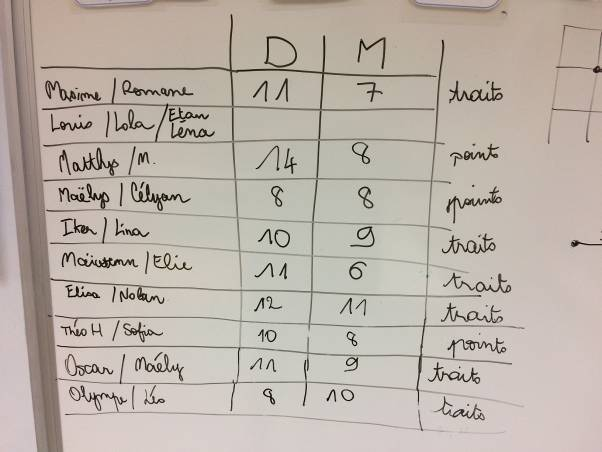 D M
Maxime / Romane 11 7 traits
Louis / Lola / Etan Léna
Matthys / M. 14 8 points
Maëlys / Célyan 8 8 points
Iker / Lina 10 9 traits
/ Elie 11 6 traits
Elisa / Nolan 12 11 traits
Théo H / Sofia 10 8 points
Oscar / Maély 11 9 traits
Olympe / Léo 8 10 traits